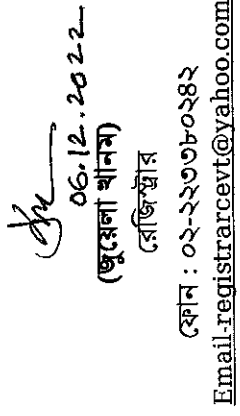 06.12.2022
(জুয়েলা খানম)
রেজিস্ট্রার
ফোন : ০২-২২৩৩৮০২৪২
Email-registrarcevt@yahoo.com